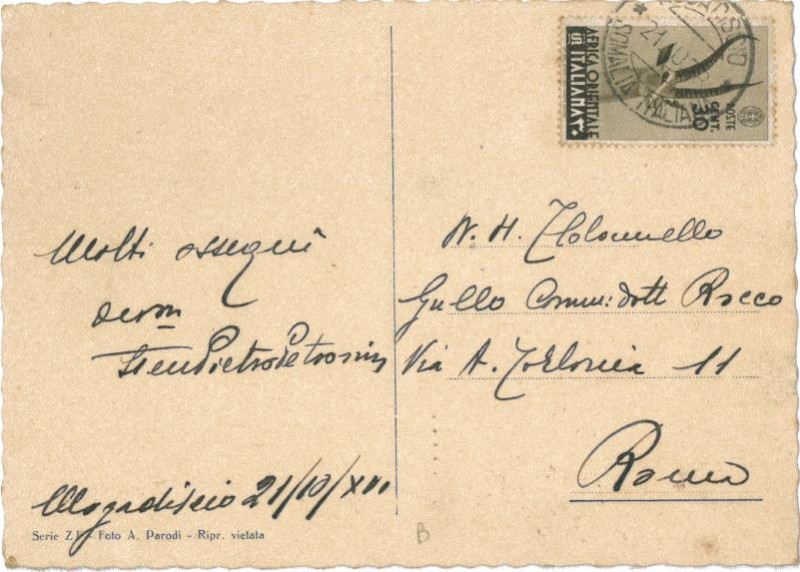 Molti ossequi
Ten Pietro Petronin
Mogadiscio 21/10/XVI
Serie Z.F - Foto A. Parodi - Ripr. vietata
N. H. Colonnello
Gullo Comm: Dott Rocco
Via A. Torlonia 11
Roma
AFRICA ORIENTALE
ITALIANA
POSTE
CENT.
30
SOMALIA ITALIANA
B